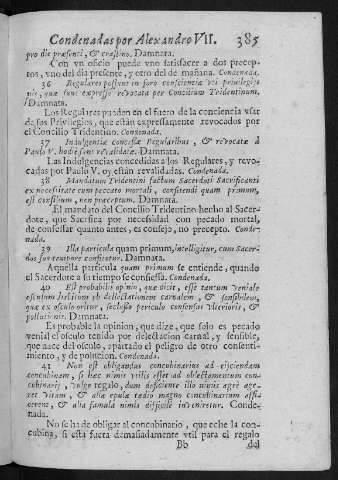 Condenadas por Alexandro VII. 385
pro die præsenti, & crastino. Damnata.
Con vn oficio puede vno satisfacer a dos precep-
tos, vno del dia presente, y otro del de mañana. Condenada.
36 Regulares possunt in foro conscientiæ vti privilegijs
suis, quæ sunt expresse revocata per Concilium Tridentinum.
Damnata.
Los Regulares pueden en el fuero de la conciencia vsar
de sus Privilegios, que están expressamente revocados por
el Concilio Tridentino. Condenada.
37 Indulgentiæ concessæ Regularibus, & revocatæ à
Paulo V. hodie sunt revalidatæ. Damnata.
Las Indulgencias concedidas a los Regulares, y revo-
cadas por Paulo V. oy están revalidadas. Condenada.
38 Mandatum Tridentini factum Sacerdoti Sacrificanti
ex necessitate cum peccato mortali, confitendi quam primum,
est consilium, non præceptum. Damnata.
El mandato del Concilio Tridentino hecho al Sacer-
dote, que Sacrifica por necesidad con pecado mortal,
de confessar quanto antes, es consejo, no precepto. Conde-
nada.
39 Illa particula quam primum, intelligitur, cum Sacer-
dos suo tempore confitetur. Damnata.
Aquella particula quam primum se entiende, quando
el Sacerdote a su tiempo se confiessa. Condenada.
40 Est probabilis opinio, quæ dicit, esse tantum veniale
osculum habitum ob delectationem carnalem, & sensibilem,
quæ ex osculo oritur, secluso periculo consensus vlterioris, &
pollutionis. Damnata.
Es probable la opinion, que dize, que solo es pecado
venial el osculo tenido por delectacion carnal, y sensible,
que nace del osculo, apartado el peligro de otro consenti-
miento, y de polucion. Condenada.
41 Non est obligandus concubinarius ad ejiciendam
concubinam, si hæc nimis vtilis esset ad oblectamentum con-
cubinarij, vulgo regalo, dum deficiente illo nimis ægrè age-
ret vitam, & aliæ epulæ tædio magno concubinarium affi-
cerent, & alia famula nimis difficilè inveniretur. Conde-
nada.
No se ha de obligar al concubinario, que eche la con-
cubina, si esta fuera damasiadamente vtil para el regalo
Bb del